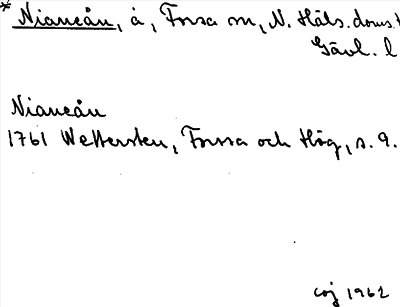 * Niancån, å, Forsa sn, N. Häls. doms.
Gävl. l
Niancån
1761 Wettersten, Forssa och Hög, s. 9.
coj 1962